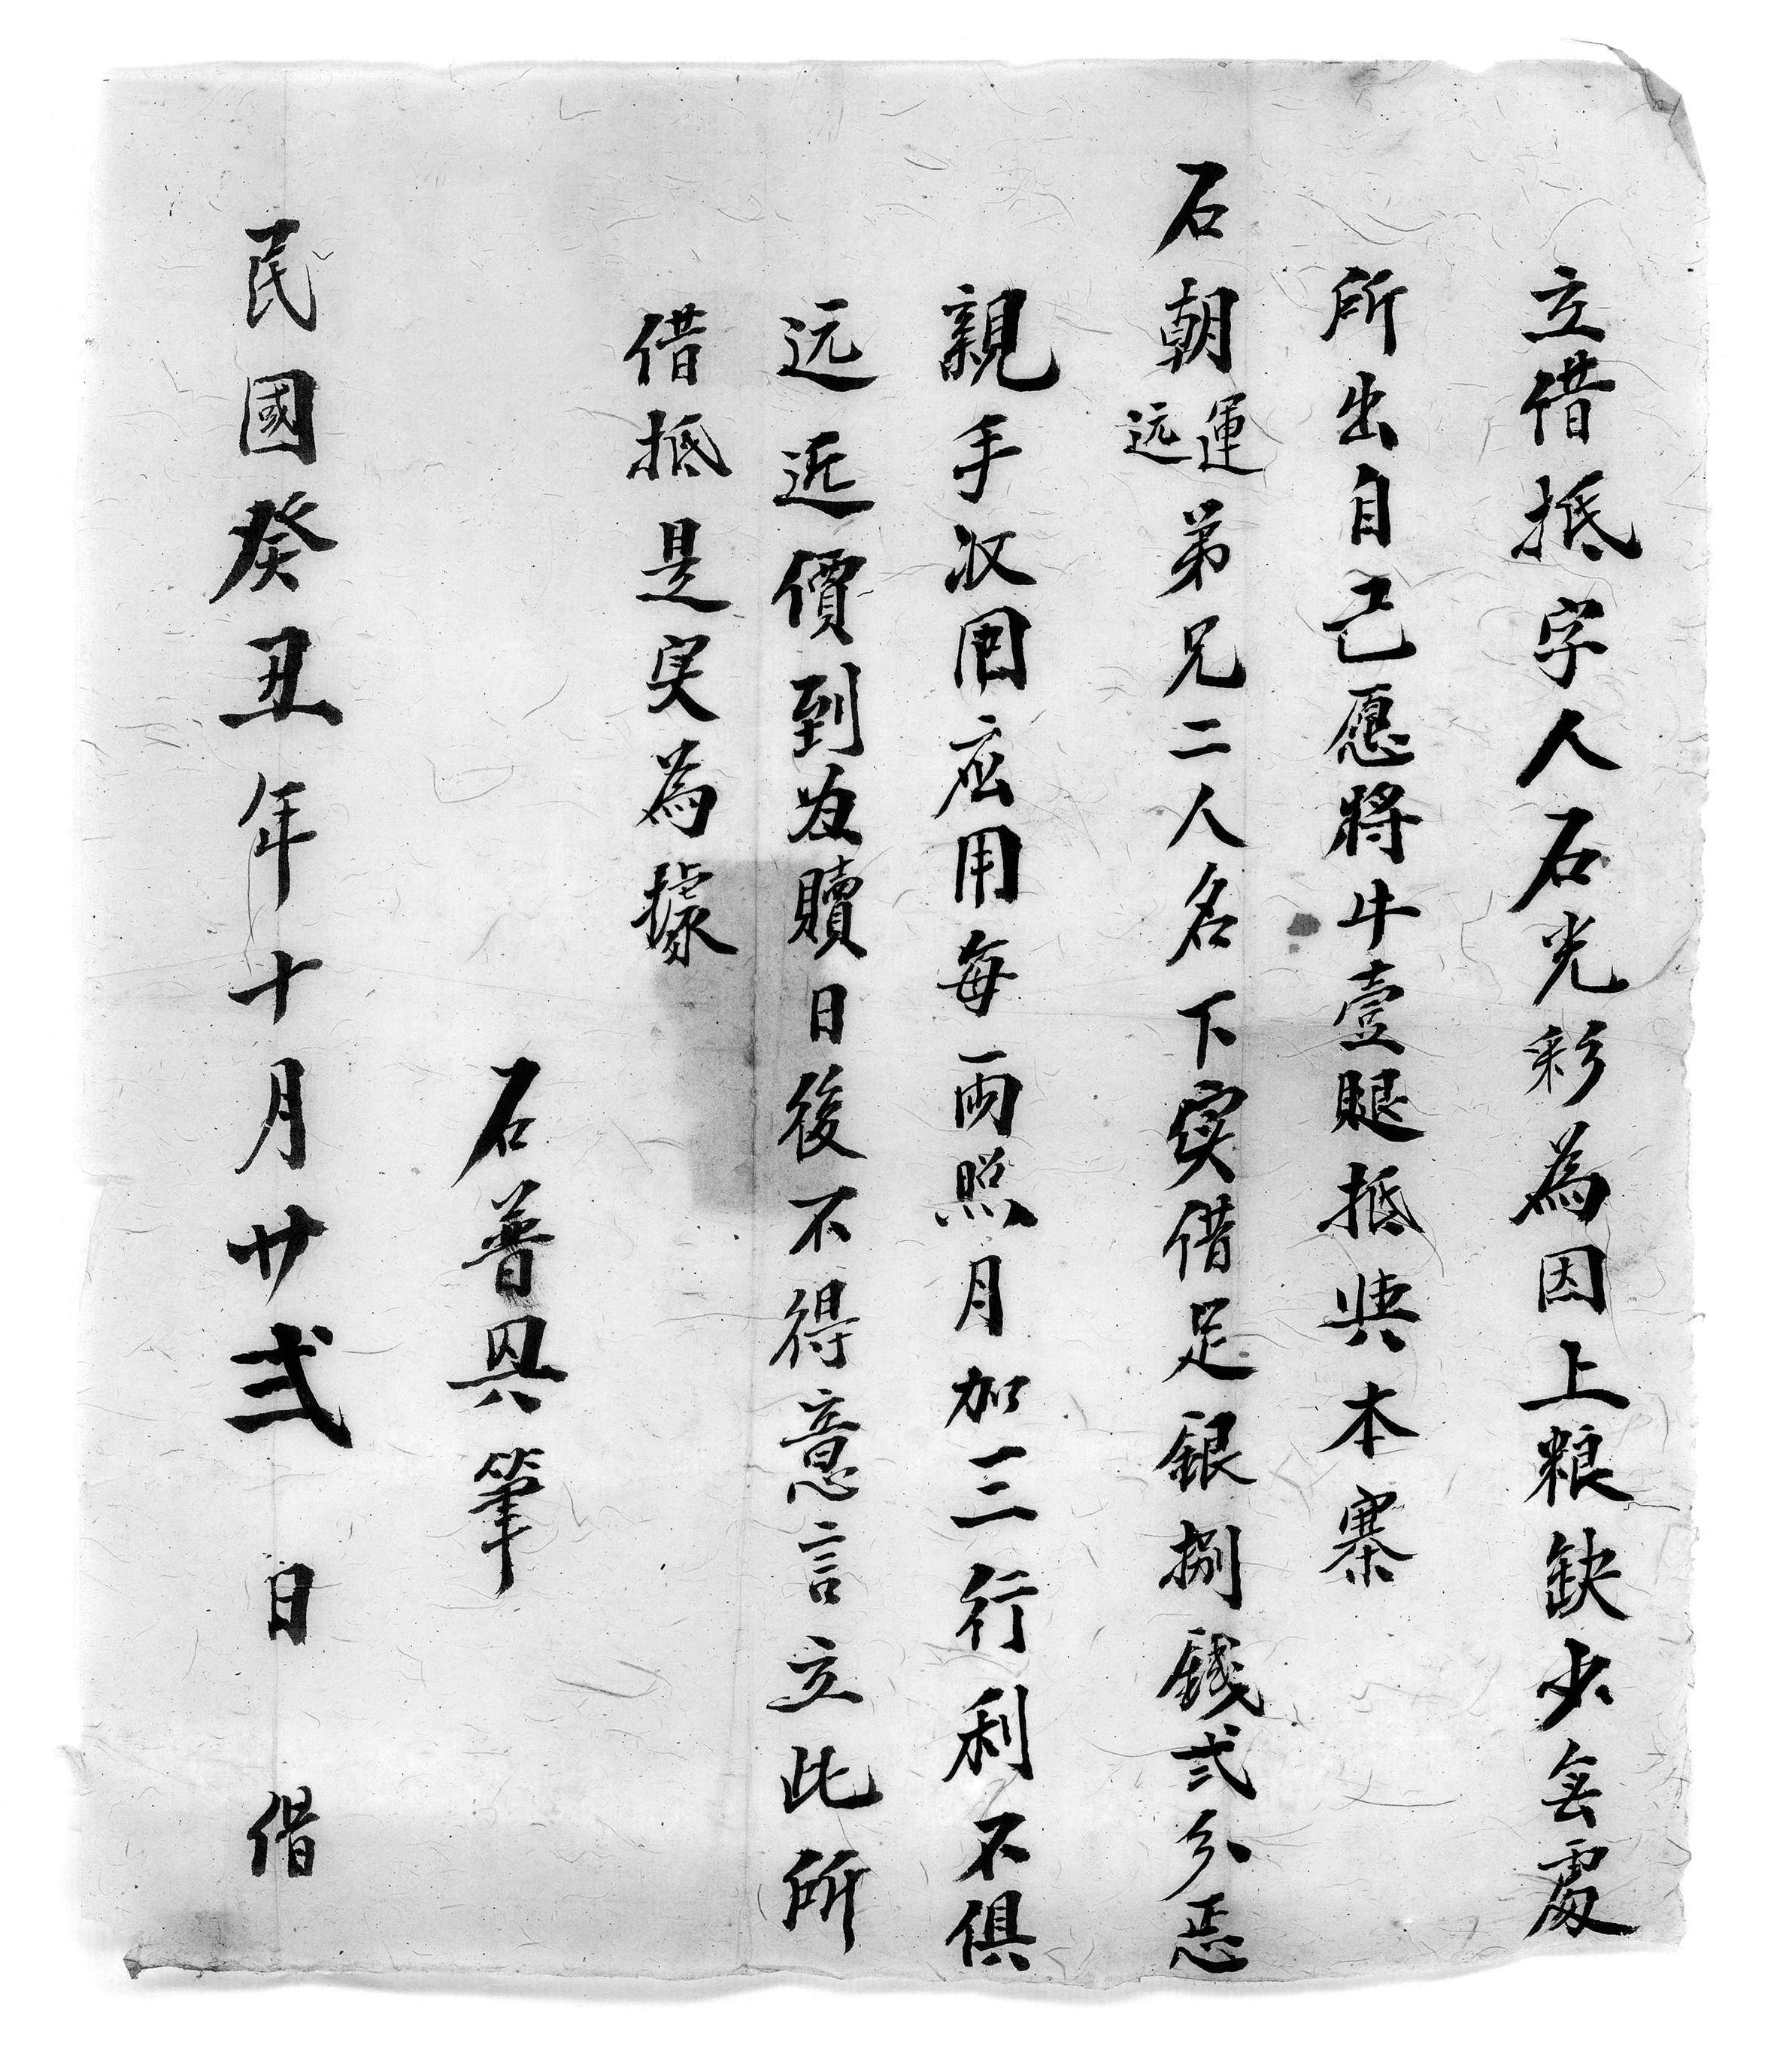 立借抵字人石光彩為因上粮缺少無處
所出自己愿將牛壹腿抵與本寨
石朝運远弟兄二人名下实借足銀捌錢弍分恁
親手收囬应用每両照月加三行利不俱
远近價到為贖日後不得意言立此所
借抵是实為據
石普興筆
民國癸丑年十月廿弍日借